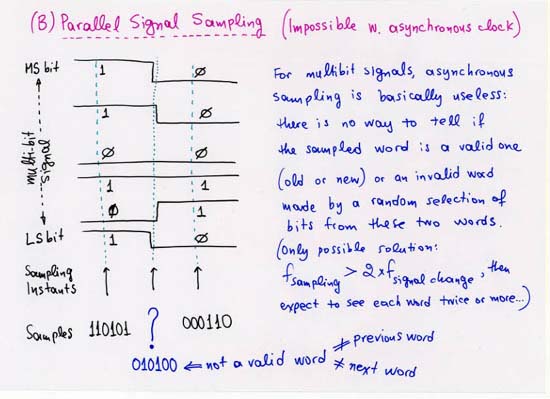 (B) Parallel Signal Sampling (Impossible w. asynchronous clock)
MS bit
1 Ø
1 Ø
Ø Ø
1 1
Ø 1
1 Ø
multi-bit
signal
LS bit
Sampling
Instants
Samples 110101 ? 000110
010100 ⇐ not a valid word
≠ previous word
≠ next word
For multibit signals, asynchronous
sampling is basically useless:
there is no way to tell if
the sampled word is a valid one
(old or new) or an invalid word
made by a random selection of
bits from these two words.
(Only possible solution:
fsampling > 2×fsignal change, then
expect to see each word twice or more...)